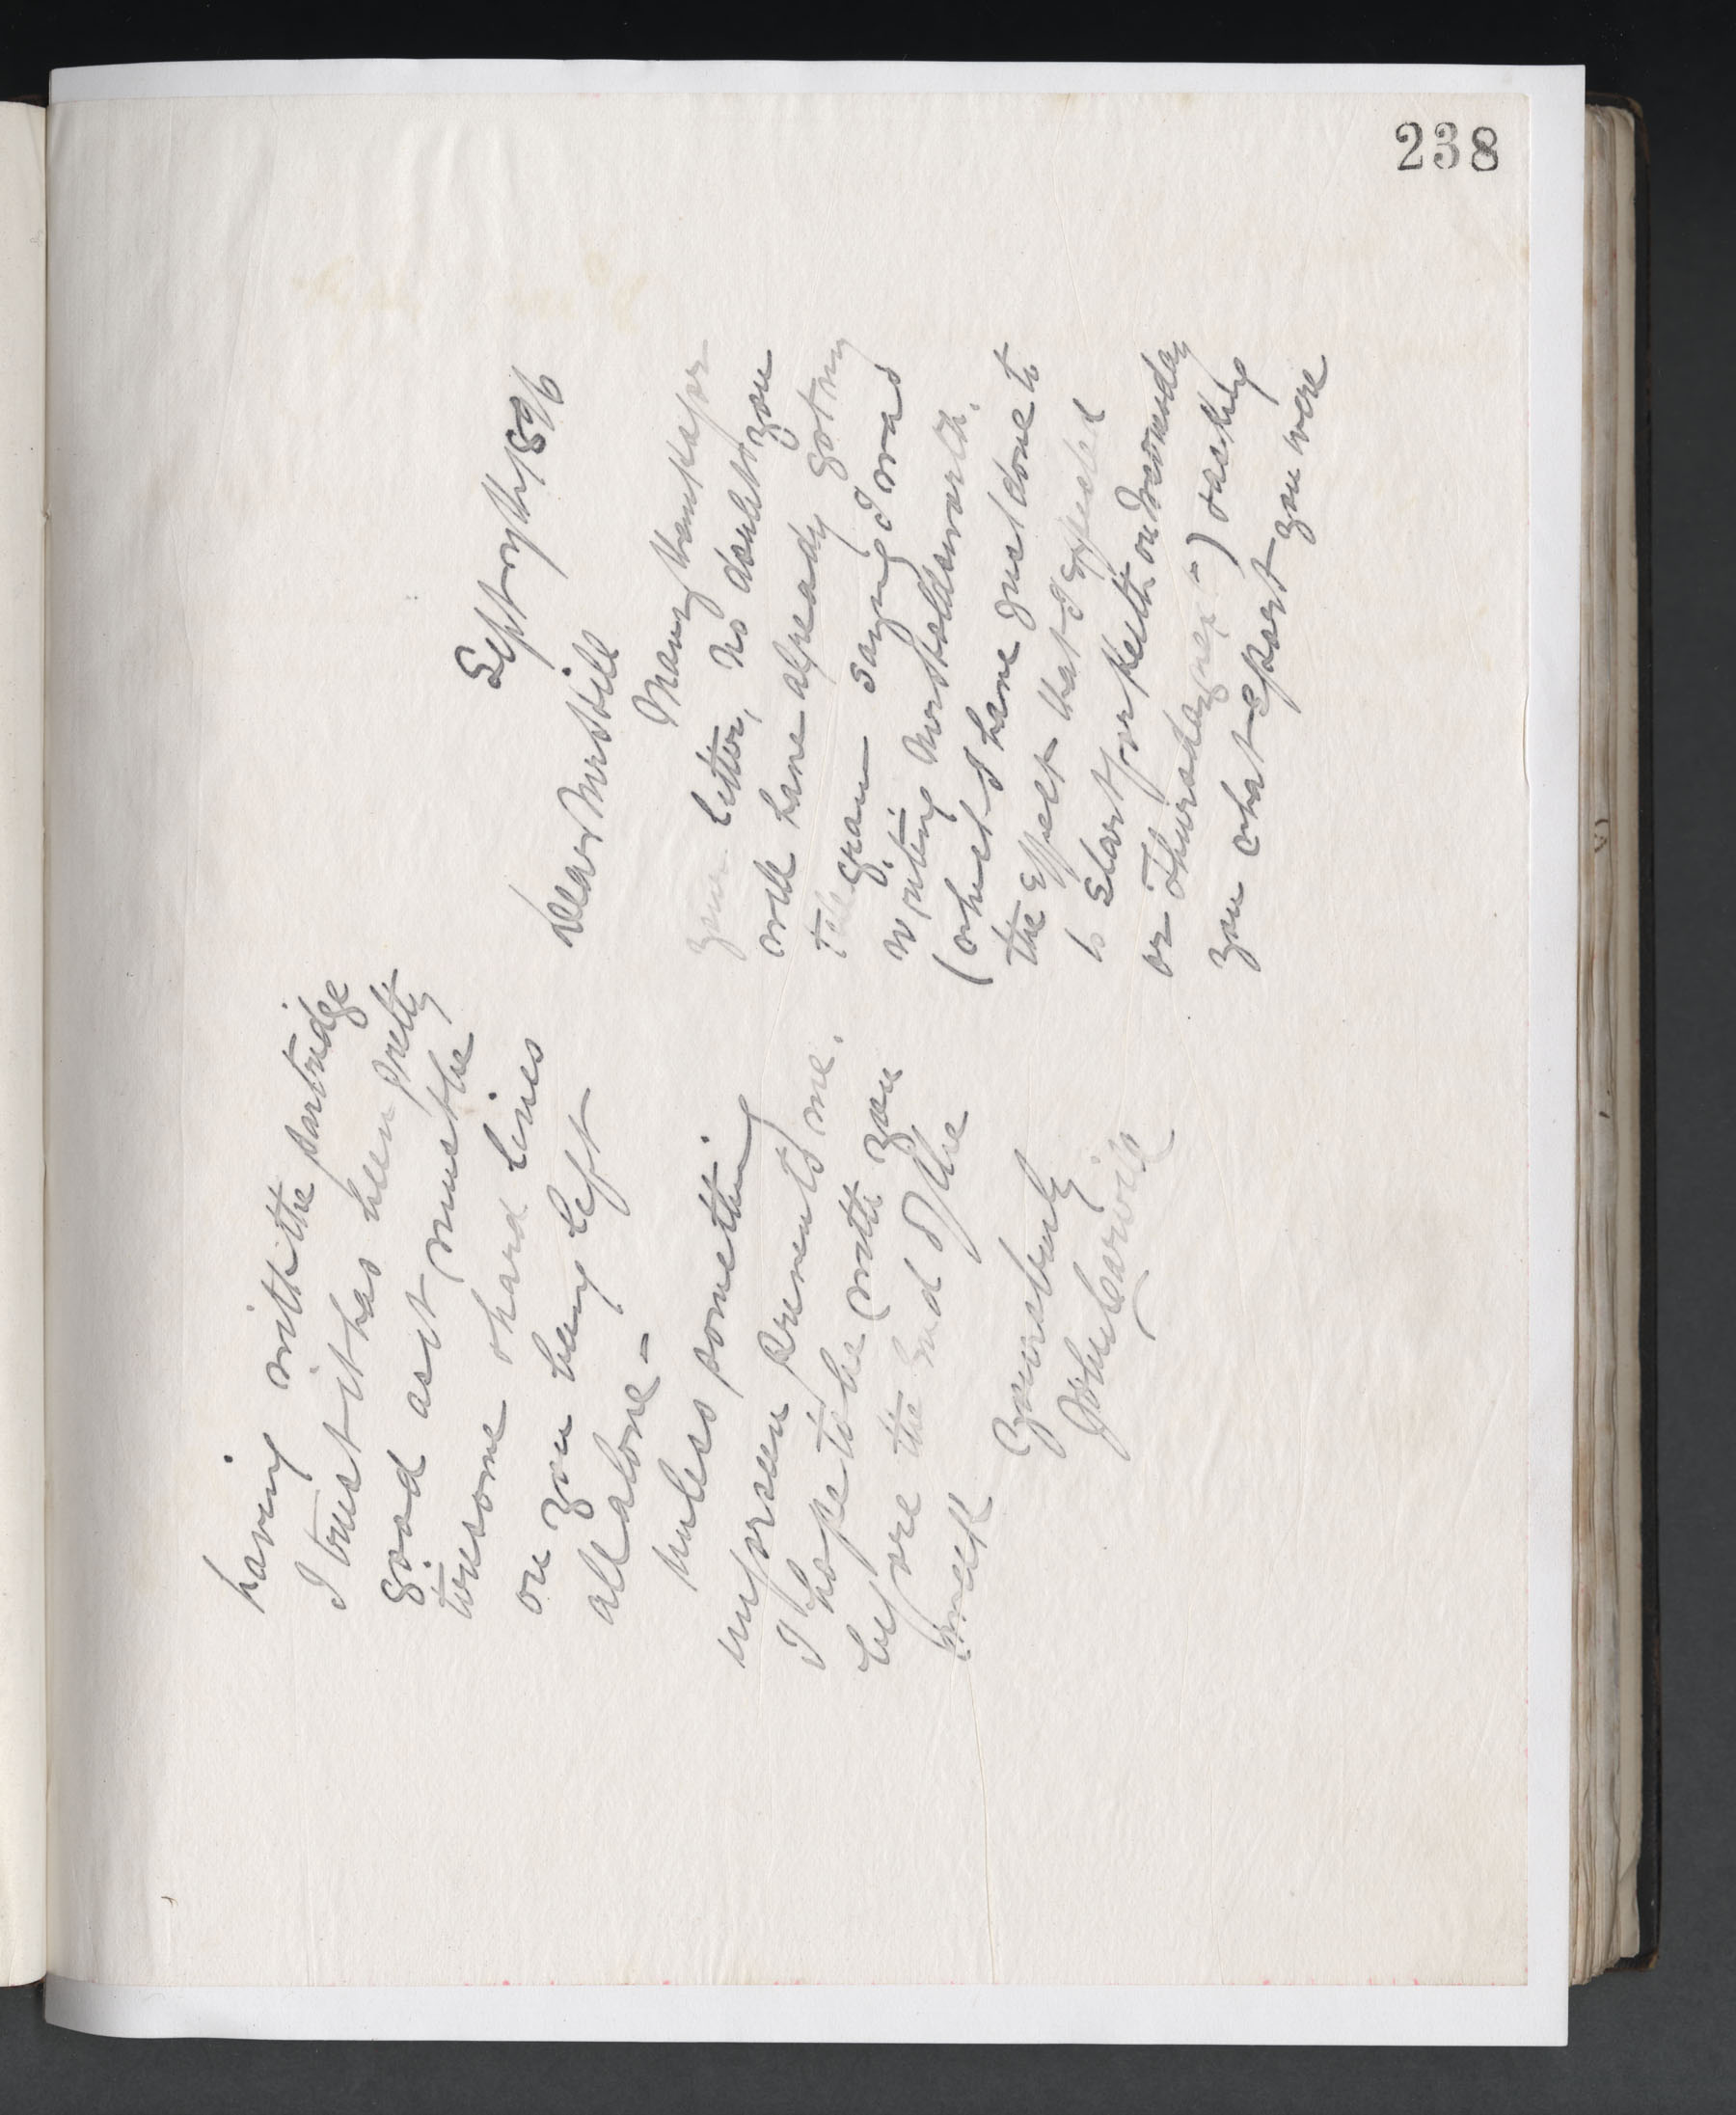 238
Septr 7th 1896
Dear Mrs Hill
Many thanks for
your letter, no doubt you
will have already got my
telegram saying I was
writing Mrs Holdsworth.
(which I have just done to
the effect that I expected
to start for Keith on Wednesday
or Thursday next) & asking
you what sport you were
having with the partridge
I trust it has been pretty
good as it must be
tiresome & hard lines
on you being left
all alone –
Unless something
unforseen prevents me.
I hope to be with you
before the end of the
week
Yours truly
John